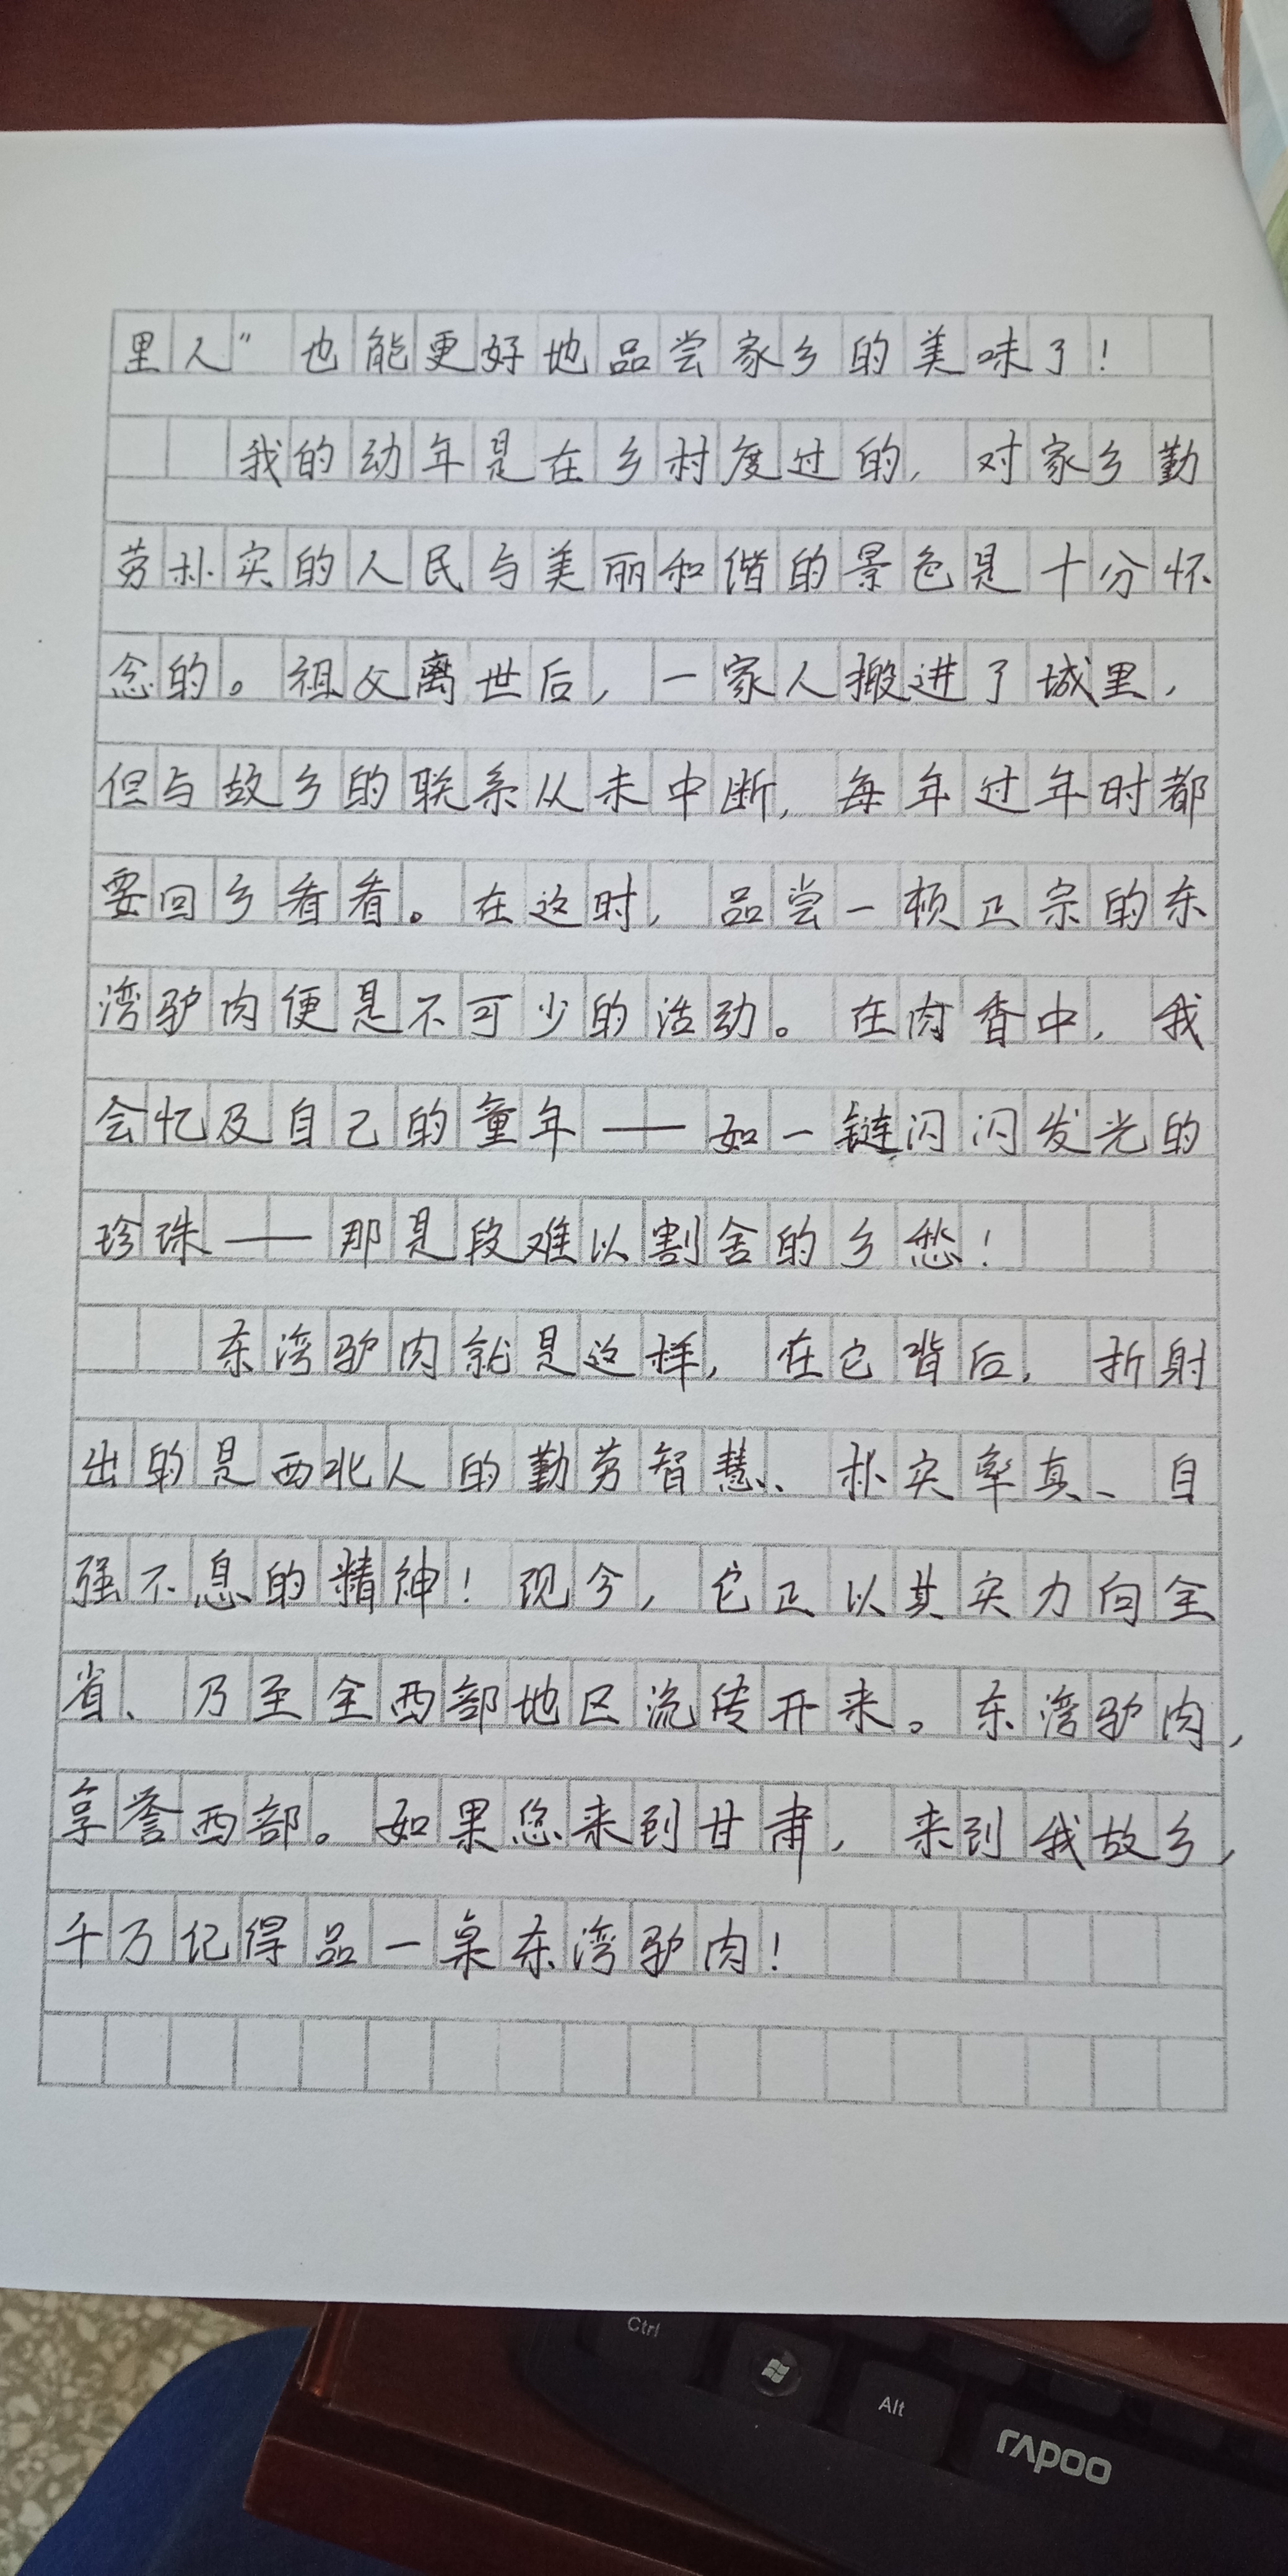 里人”也能更好地品尝家乡的美味了！
我的幼年是在乡村度过的，对家乡勤
劳朴实的人民与美丽和谐的景色是十分怀
念的。祖父离世后，一家人搬进了城里，
但与故乡的联系从未中断，每年过年时都
要回乡看看。在这时，品尝一顿正宗的东
湾驴肉便是不可少的活动。在肉香中，我
会忆及自己的童年——如一链闪闪发光的
珍珠——那是段难以割舍的乡愁！
东湾驴肉就是这样，在它背后，折射
出的是西北人的勤劳智慧、朴实率真、自
强不息的精神！现今，它正以其实力向全
省、乃至全西部地区流传开来。东湾驴肉，
享誉西部。如果您来到甘肃，来到我故乡，
千万记得品一桌东湾驴肉！
Ctrl
Alt
rapoo